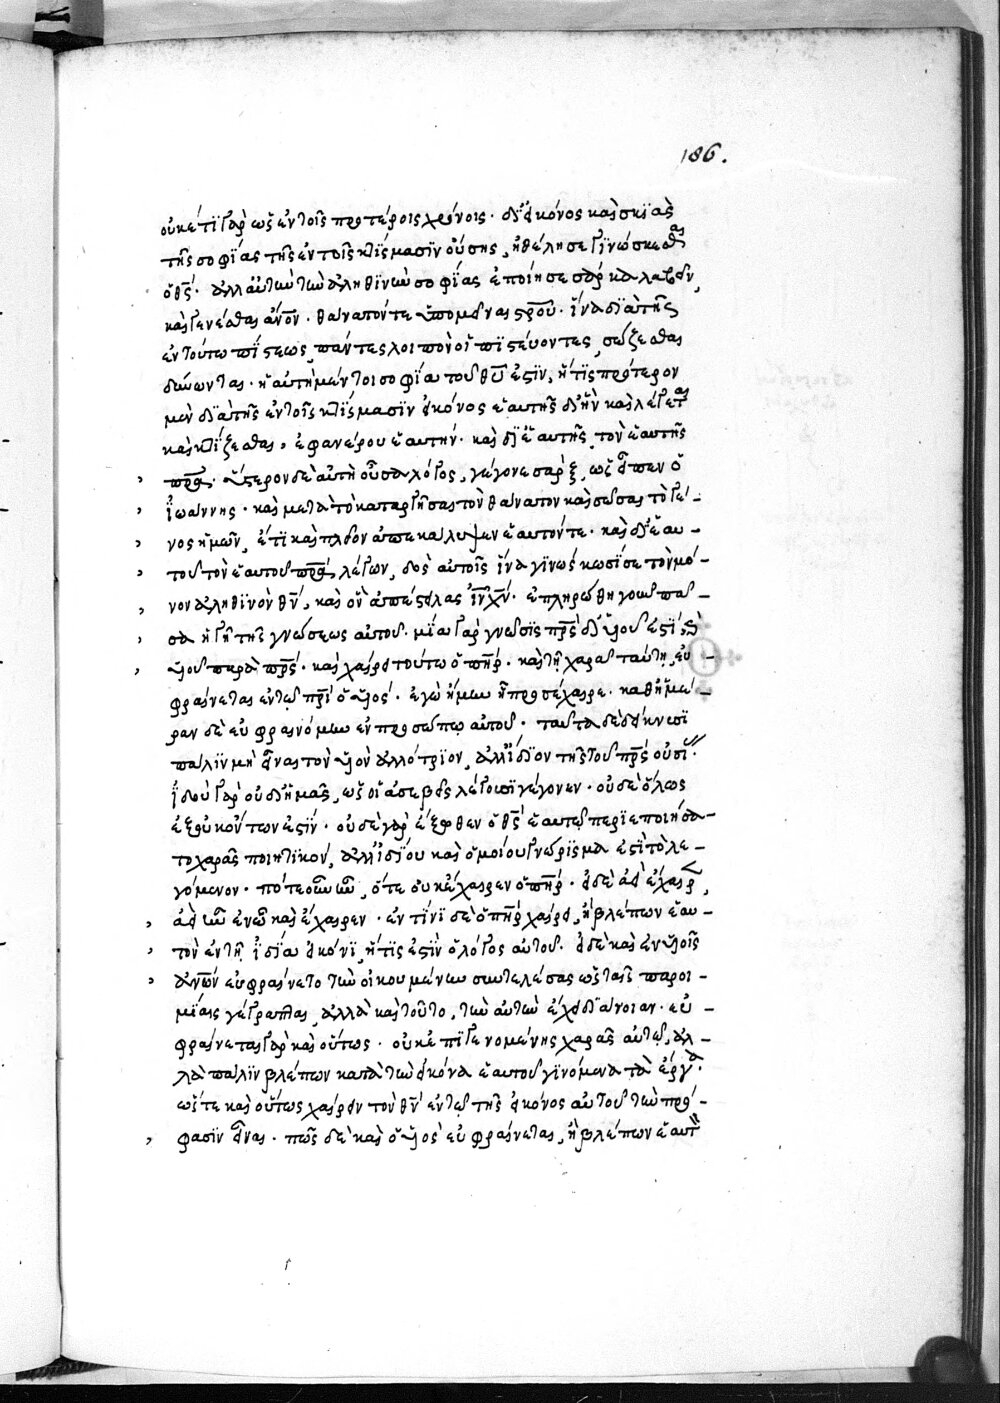 186.
οὐκέτι γὰρ ὡς ἐν τοῖς προτέροις χρόνοις· δι' εἰκόνος καὶ σκιᾶς
τῆς σοφίας τῆς ἐν τοῖς κτίσμασιν οὔσης, ἠθέλησε γινώσκεσθαι
ὁ θς· ἀλλ' αὐτὴν τὴν ἀληθινὴν σοφίας ἐποίησε σάρκα λαβεῖν,
καὶ γενέσθαι ἄνον· θάνατόν τε ὑπομεῖναι σροῦ· ἵνα διὰ τῆς
ἐν τούτω πίστεως, πάντες λοιπὸν οἱ πιστεύοντες, σώζεσθαι
δύνωνται· ἡ αὐτὴ μέντοι σοφία τοῦ θυ ἐστὶν, ἥτις πρότερον
μὲν διὰ τῆς ἐν τοῖς κτίσμασιν εἰκόνος ἑαυτῆς δι' ἣν καὶ λέγεται
καὶ κτίζεσθαι, ἐφανέρου ἑαυτήν· καὶ δι' ἑαυτῆς τὸν ἑαυτῆς
πρα· ὕστερον δὲ αὐτὴ οὖσα λόγος, γέγονε σὰρξ, ὡς εἶπεν ὁ
ἰωάννης· καὶ μετὰ τὸ καταργῆσαι τὸν θάνατον καὶ σῶσαι τὸ γέ-
νος ἡμῶν, ἔτι καὶ πλεῖον ἀπεκάλυψεν ἑαυτόν τε· καὶ δι' ἑαυ-
τοῦ τὸν ἑαυτοῦ πρα λέγων, δὸς αὐτοῖς ἵνα γινώσκωσί σε τὸν μό-
νον ἀληθινὸν θν, καὶ ὃν ἀπέστειλας ἰν χν· ἐπληρώθη γοῦν πᾶ-
σα ἡ γῆ τῆς γνώσεως αὐτοῦ· μία γὰρ γνῶσις πρς δι' υἱοῦ ἐστὶ, καὶ
υἱοῦ παρὰ πρς· καὶ χαίρει τούτω ὁ πηρ· καὶ τῆ χαρᾶ ταύτη, εὐ-
φραίνεται ἐν τῶ πρὶ ὁ υἱός· ἐγὼ ἤμην ἧ προσέχαιρε· καθ' ἡμέ-
ραν δὲ εὐφραινόμην ἐν προσώπω αὐτοῦ· ταῦτα δὲ δείκνυσι
πάλιν μὴ εἶναι τὸν υἱὸν ἀλλότριον, ἀλλ' ἴδιον τῆς τοῦ πρς οὐσί
ἰδοὺ γὰρ οὐ δι' ἡμᾶς, ὡς οἱ ἀσεβεῖς λέγουσι γέγονεν· οὐδὲ ὅλως
ἐξ οὐκ ὄντων ἐστίν· οὐδὲ γὰρ ἔξωθεν ὁ θς ἑαυτῶ περιεποιήσα-
το χαρᾶς ποιητικόν, ἀλλ' ἰδίου καὶ ὁμοίου γνώρισμα ἐστὶ τὸ λε-
γόμενον· πότε οὖν ἦν, ὅτε οὐκ ἔχαιρεν ὁ πηρ· εἰ δὲ ἀεὶ ἔχαιρε,
ἀεὶ ἦν ἐν ὧ καὶ ἔχαιρεν· ἐν τίνι δὲ ὁ πηρ χαίρει, ἢ βλέπων ἑαυ-
τὸν ἐν τῆ ἰδία εἰκόνι, ἥτις ἐστὶν ὁ λόγος αὐτοῦ· εἰ δὲ καὶ ἐν υἱοῖς
ἀνων εὐφραίνετο τὴν οἰκουμένην συντελέσας ὡς ἐν ταῖς παροι-
μίαις γέγραπται, ἀλλὰ καὶ τοῦτο, τὴν αὐτὴν ἔχει διάνοιαν· εὐ-
φραίνεται γὰρ καὶ οὕτως· οὐκ ἐπιγενομένης χαρᾶς αὐτῶ, ἀλ-
λὰ πάλιν βλέπων κατὰ τὴν εἰκόνα ἑαυτοῦ γινόμενα τὰ ἔργα·
ὥστε καὶ οὕτως χαίρειν τὸν θν ἐν τῶ τῆς εἰκόνος αὐτοῦ τὴν πρό-
φασιν εἶναι· πῶς δὲ καὶ ὁ υἱὸς εὐφραίνεται, ἢ βλέπων ἑαυτὸν